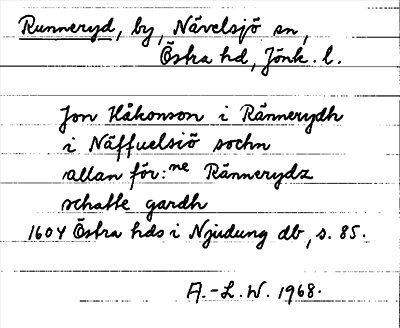 Runneryd, by, Nävelsjö sn,
Östra hd, Jönk. l.
Jon Håkonson i Rännerydh
i Näffuelsiö sochn
allan för:ne Rännerydz
schatte gardh
1604 Östra hds i Njudung db, s. 85.
A.-L.W. 1968.